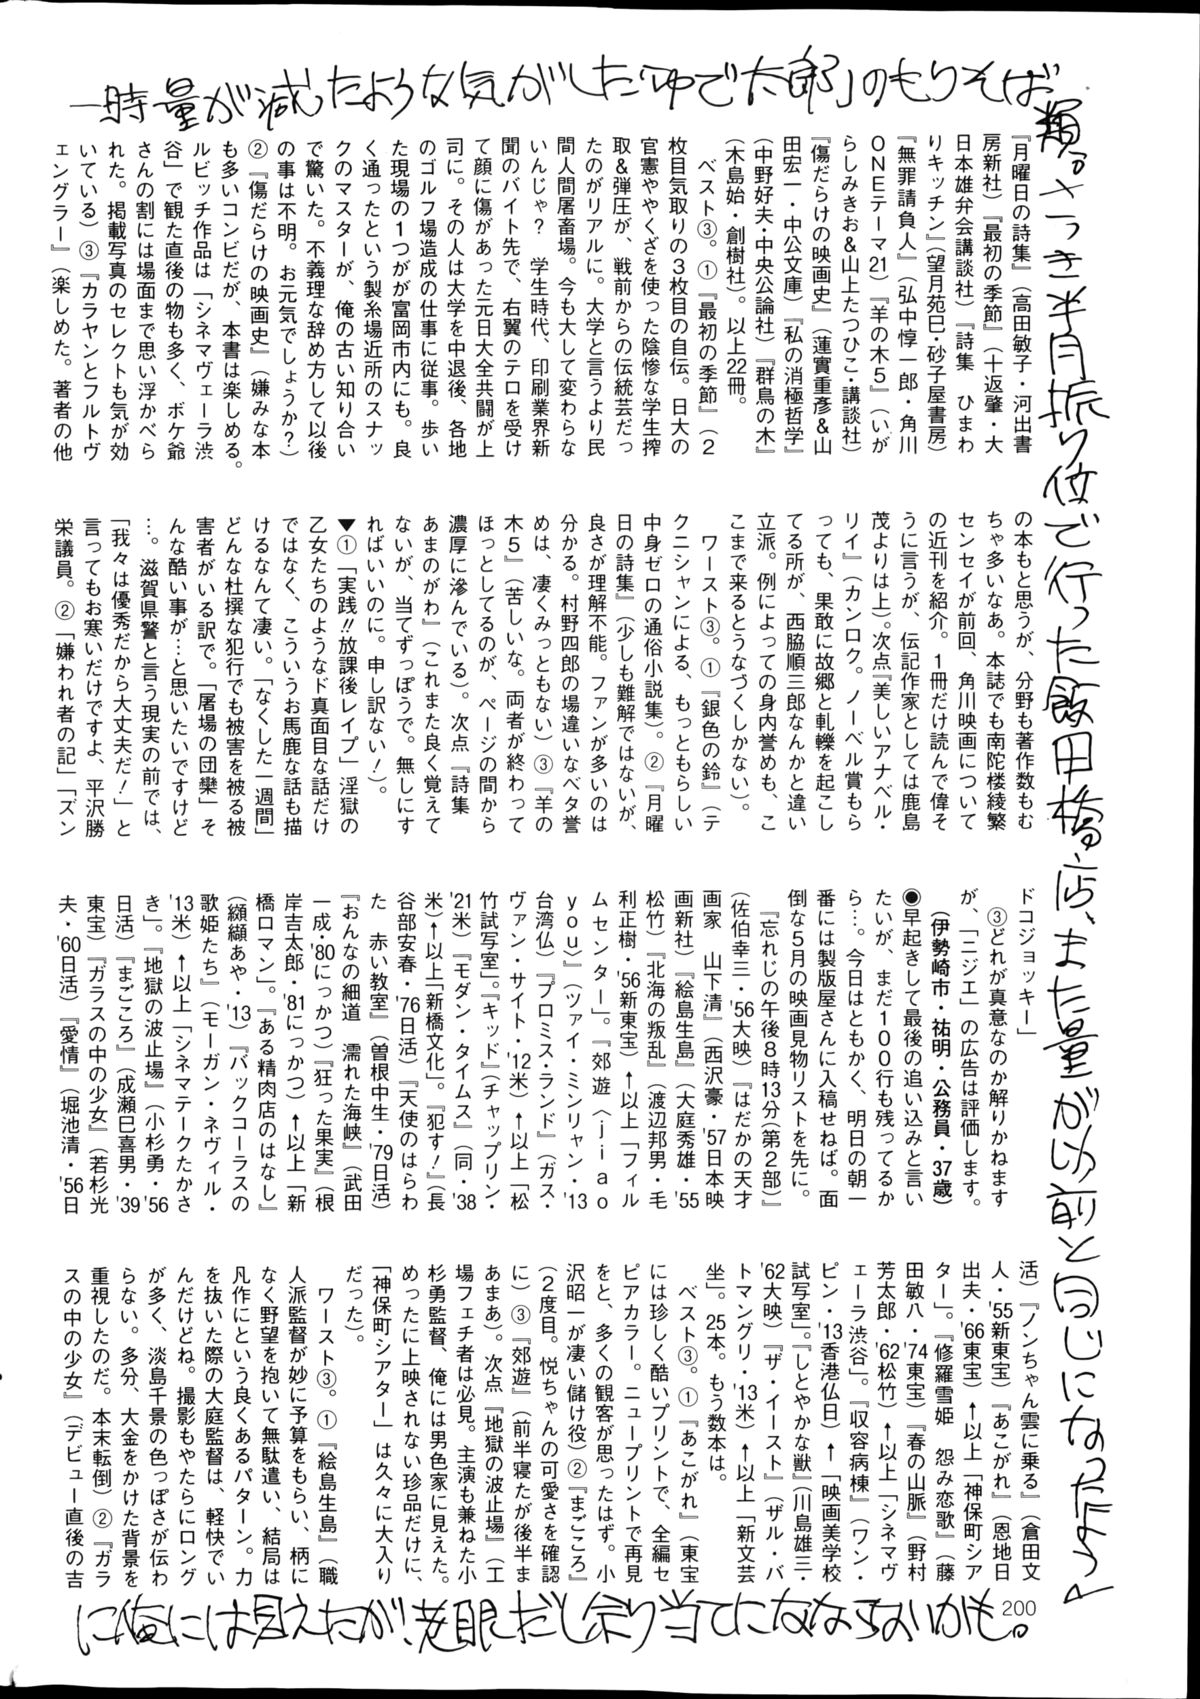 一時量が減したような気がした「ゆで太郎」のもりそば
『月曜日の詩集』（高田敏子・河出書
房新社）『最初の季節』（十返肇・大
日本雄弁会講談社）『詩集　ひまわ
りキッチン』（望月苑巳・砂子屋書房）
『無罪請負人』（弘中惇一郎・角川
ＯＮＥテーマ21）『羊の木５』（いが
らしみきお＆山上たつひこ・講談社）
『傷だらけの映画史』（蓮實重彦＆山
田宏一・中公文庫）『私の消極哲学』
（中野好夫・中央公論社）『群鳥の木』
（木島始・創樹社）。以上22冊。
ベスト③。①『最初の季節』（２
枚目気取りの３枚目の自伝。日大の
官憲ややくざを使った陰惨な学生搾
取＆弾圧が、戦前からの伝統芸だっ
たのがリアルに。大学と言うより民
間人間屠畜場。今も大して変わらな
いんじゃ？　学生時代、印刷業界新
聞のバイト先で、右翼のテロを受け
て顔に傷があった元日大全共闘が上
司に。その人は大学を中退後、各地
のゴルフ場造成の仕事に従事。歩い
た現場の１つがが富岡市内にも。良
く通ったという製糸場近所のスナッ
クのマスターが、俺の古い知り合い
で驚いた。不義理な辞め方して以後
の事は不明。お元気でしょうか？）
②『傷だらけの映画史』（嫌みな本
も多いコンビだが、本書は楽しめる。
ルビッチ作品は「シネマヴェーラ渋
谷」で観た直後の物も多く、ボケ爺
さんの割には場面まで思い浮かべら
れた。掲載写真のセレクトも気が効
いている）③『カラヤンとフルトヴ
ェングラー』（楽しめた。著者の他
の本もと思うが、分野も著作数もむ
ちゃ多いなあ。本誌でも南陀楼綾繁
センセイが前回、角川映画について
の近刊を紹介。１冊だけ読んで偉そ
うに言うが、伝記作家としては鹿島
茂よりは上）。次点『美しいアナベル・
リイ』（カンロク。ノーベル賞もら
っても、果敢に故郷と軋轢を起こし
てる所が、西脇順三郎なんかと違い
立派。例によっての身内誉めも、こ
こまで来るとうなづくしかない）。
ワースト③。①『銀色の鈴』（テ
クニシャンによる、もっともらしい
中身ゼロの通俗小説集）。②『月曜
日の詩集』（少しも難解ではないが、
良さが理解不能。ファンが多いのは
分かる。村野四郎の場違いなベタ誉
めは、凄くみっともない）③『羊の
木５』（苦しいな。両者が終わって
ほっとしてるのが、ページの間から
濃厚に滲んでいる）。次点『詩集
あまのがわ』（これまた良く覚えて
ないが、当てずっぽうで。無しにす
ればいいのに。申し訳ない！）。
▼①「実践!!放課後レイプ」淫獄の
乙女たちのようなド真面目な話だけ
ではなく、こういうお馬鹿な話も描
けるなんて凄い。「なくした一週間」
どんな杜撰な犯行でも被害を被る被
害者がいる訳で。「屠場の団欒」そ
んな酷い事が…と思いたいですけど
…。滋賀県警と言う現実の前では、
「我々は優秀だから大丈夫だ！」と
言ってもお寒いだけですよ、平沢勝
栄議員。②「嫌われ者の記」「ズン
ドコジョッキー」
③どれが真意なのか解りかねます
が、「ニジエ」の広告は評価します。
（伊勢崎市・祐明・公務員・37歳）
●早起きして最後の追い込みと言い
たいが、まだ１００行も残ってるか
ら…。今日はともかく、明日の朝一
番には製版屋さんに入稿せねば。面
倒な５月の映画見物リストを先に。
『忘れじの午後８時13分（第２部）』
（佐伯幸三・’56大映）『はだかの天才
画家　山下清』（西沢豪・’57日本映
画新社）『絵島生島』（大庭秀雄・’55
松竹）『北海の叛乱』（渡辺邦男・毛
利正樹・’56新東宝）↑以上「フィル
ムセンター」。『郊遊〈ｊｉａｏ
ｙｏｕ〉』（ツァイ・ミンリャン・’13
台湾仏）『プロミス・ランド』（ガス・
ヴァン・サイト・’12米）↑以上「松
竹試写室」。『キッド』（チャップリン・
’21米）『モダン・タイムス』（同・’38
米）↑以上「新橋文化」。『犯す！』（長
谷部安春・’76日活）『天使のはらわ
た　赤い教室』（曽根中生・’79日活）
『おんなの細道　濡れた海峡』（武田
一成・’80にっかつ）『狂った果実』（根
岸吉太郎・’81にっかつ）↑以上「新
橋ロマン」。『ある精肉店のはなし』
（纐纈あや・’13）『バックコーラスの
歌姫たち』（モーガン・ネヴィル・
’13米）↑以上「シネマテークたかさ
き」。『地獄の波止場』（小杉勇・’56
日活）『まごころ』（成瀬巳喜男・’39
東宝）『ガラスの中の少女』（若杉光
夫・’60日活）『愛情』（堀池清・’56日
活）『ノンちゃん雲に乗る』（倉田文
人・’55新東宝）『あこがれ』（恩地日
出夫・’66東宝）↑以上「神保町シア
ター」。『修羅雪姫　怨み恋歌』（藤
田敏八・’74東宝）『春の山脈』（野村
芳太郎・’62松竹）↑以上「シネマヴ
ェーラ渋谷」。『収容病棟』（ワン・
ビン・’13香港仏日）↑「映画美学校
試写室」。『しとやかな獣』（川島雄三・
’62大映）『ザ・イースト』（ザル・バ
トマングリ・’13米）↑以上「新文芸
坐」。25本。もう数本は。
ベスト③。①『あこがれ』（東宝
には珍しく酷いプリントで、全編セ
ピアカラー。ニュープリントで再見
をと、多くの観客が思ったはず。小
沢昭一が凄い儲け役）②『まごころ』
（２度目。悦ちゃんの可愛さを確認
に）③『郊遊』（前半寝たが後半ま
あまあ）。次点『地獄の波止場』（工
場フェチ者は必見。主演も兼ねた小
杉勇監督、俺には男色家に見えた。
めったに上映されない珍品だけに、
「神保町シアター」は久々に大入り
だった）。
ワースト③。①『絵島生島』（職
人派監督が妙に予算をもらい、柄に
なく野望を抱いて無駄遣い、結局は
凡作にという良くあるパターン。力
を抜いた際の大庭監督は、軽快でい
んだけどね。撮影もやたらにロング
が多く、淡島千景の色っぽさが伝わ
らない。多分、大金をかけた背景を
重視したのだ。本末転倒）②『ガラ
スの中の少女』（デビュー直後の吉
さっき半月振り位で行った飯田橋店、また量が以前と同じになったよう
に俺には見えたが！老眼だし余り当てにならないかも。
200